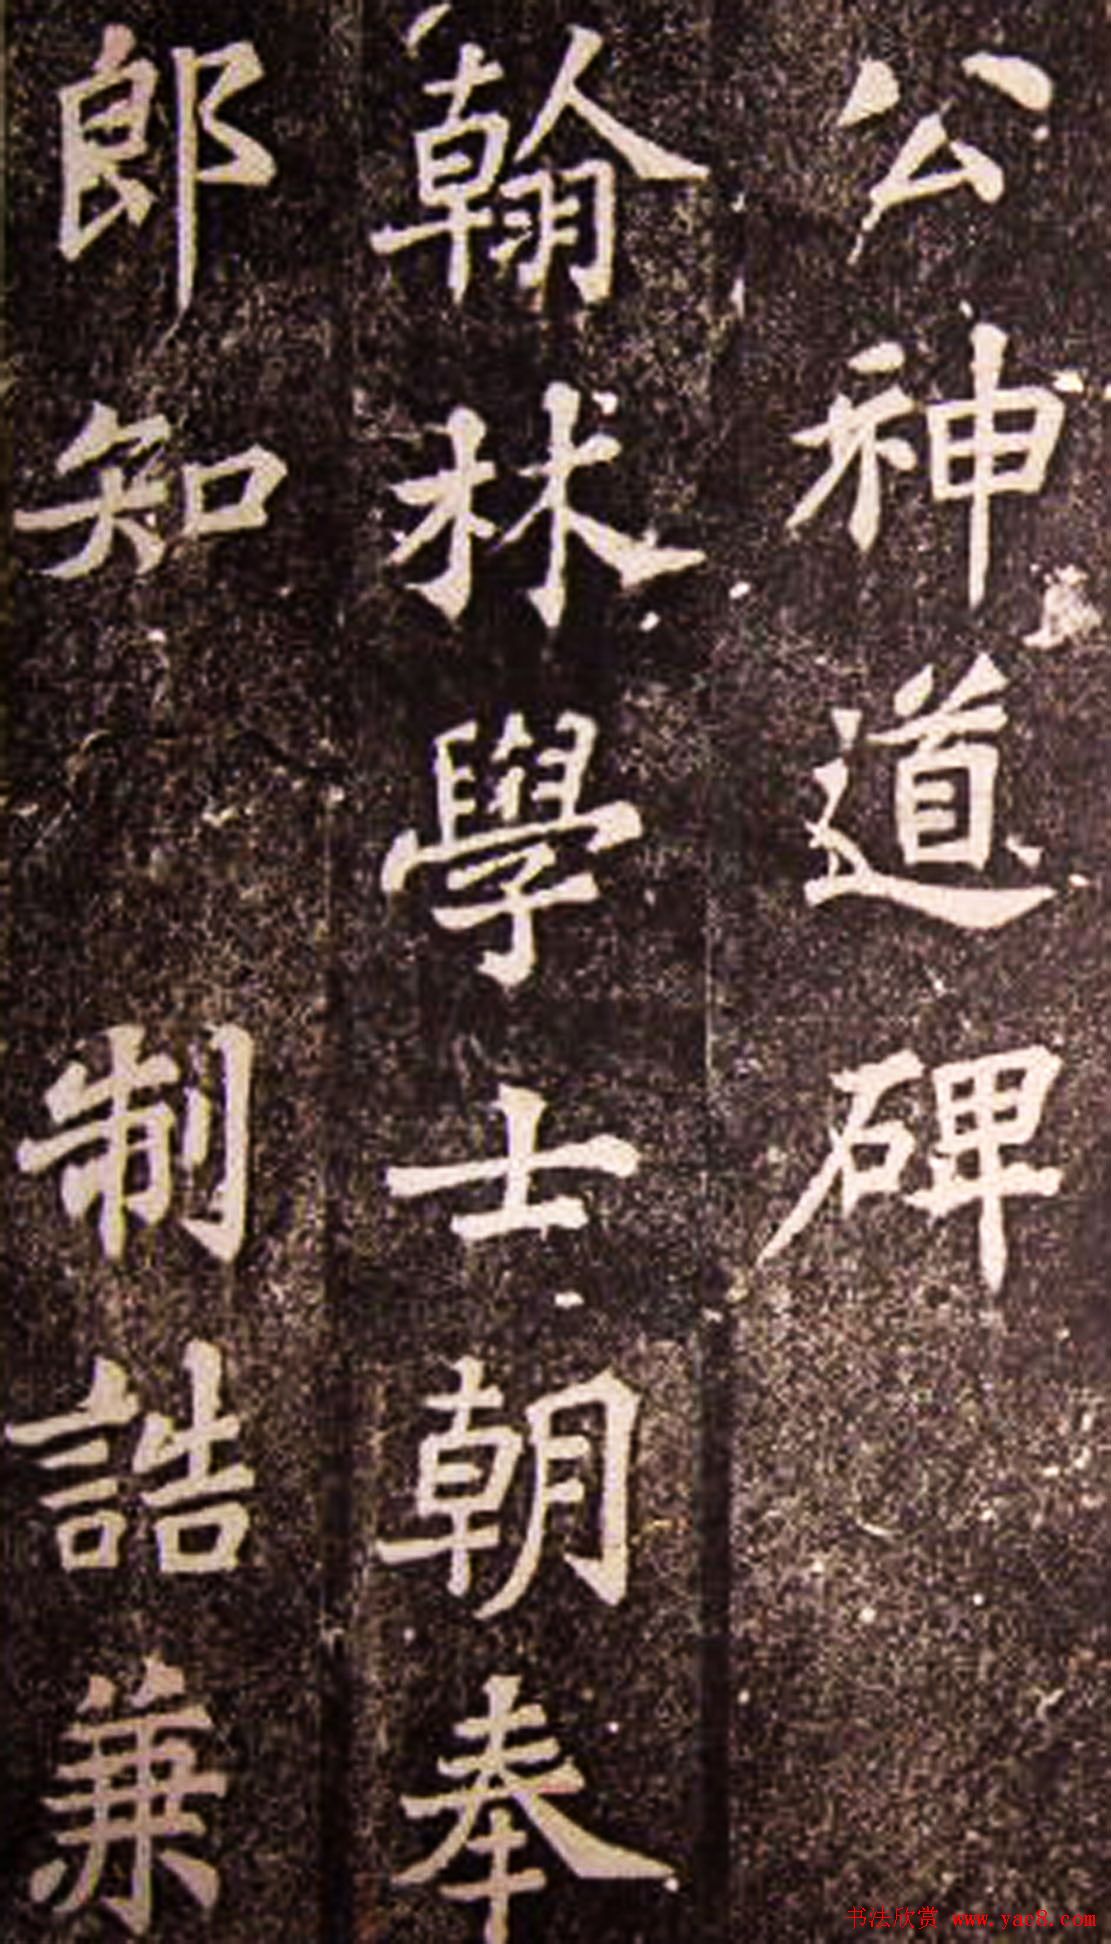 公神道碑
翰林學士朝奉
郎知制誥兼
书法欣赏 www.yac8.com